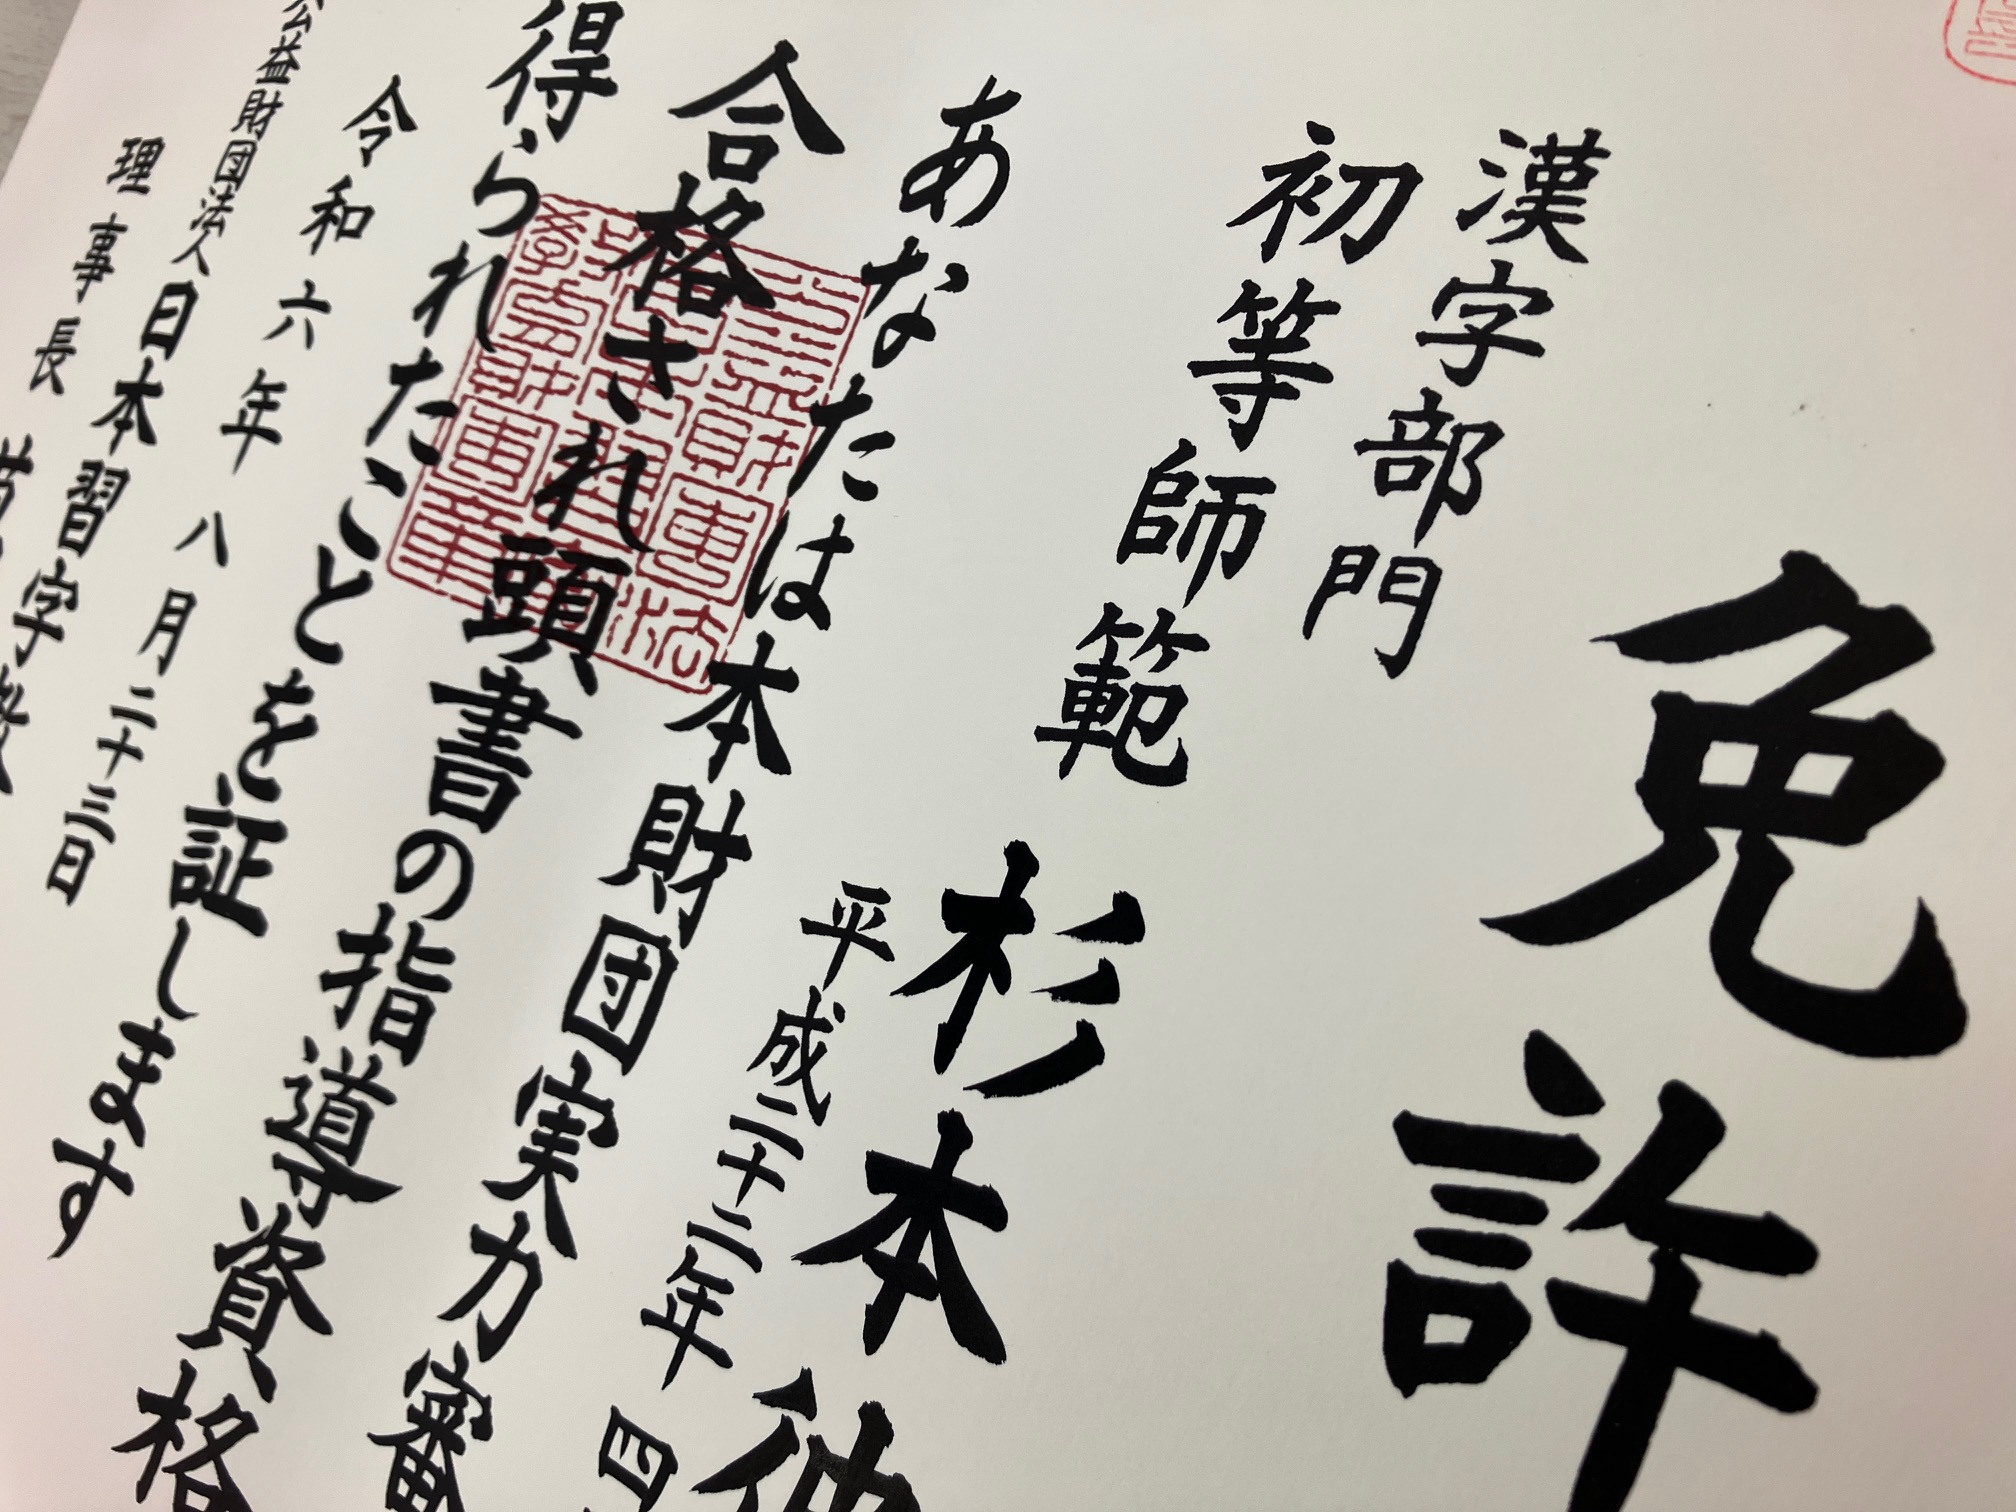 免許
漢字部門
初等師範
杉本
平成二十二年四
あなたは本財団実力審
合格され頭書の指導資格
得られたことを証します
令和六年八月二十三日
公益財団法人日本習字教
理事長